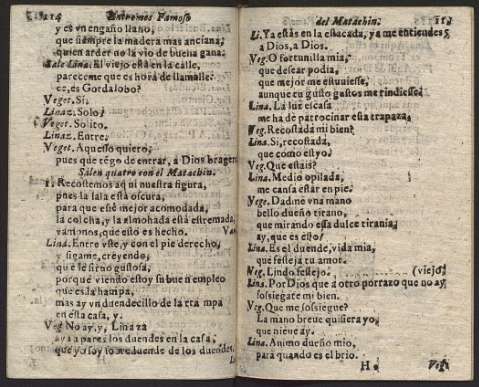 114 Entremes Famoso
y es vn engaño llano,
que siempre la madera mas anciana,
quien arder no la vio de buena gana.
Sale Lina. El viejo està en la calle,
pareceme que es hora de llamalle.
ce, es Gordalobo?
Veget. Si.
Linaz. Solo?
Veget. Solito.
Linaz. Entre.
Veget. Aquesso quiero,
pues que tẽgo de entrar, a Dios bragero
Salen quatro con el Matachin.
1. Recostemos aqui nuestra figura,
pues la sala està oscura,
para que estè mejor acomodada,
la colcha, y la almohada està estremada,
vamonos, que esto es hecho.
Lina. Entre vste, y con el pie derecho,
y sigame, creyendo,
que le siruo gustosa,
porque viendo estoy su buen empleo
que es la hampa,
mas ay vn duendecillo de la
en esta casa, y.
Veg. No ay, y, Linaza
aya a pares los duendes en la casa,
que yo soy
del Matachin. 115
Li. Ya estàs en la estacada, ya me entiendes
a Dios, a Dios.
Veg. O fortunilla mia,
que desear podia,
que mejor me estuuiesse,
aunque en gusto gastos me rindiesse.
Lina. La luz escasa
me ha de patrocinar esta trapaza.
Veg. Recostada mi bien?
Lina. Si, recostada,
que como estyo.
Veg. Que estais?
Lina. Medio opilada,
me cansa estar en pie.
Vege. Dadme vna mano
bello dueño tirano,
que mirando essa dulce tirania,
ay, que es esto?
Lina. Es el duende, vida mia,
que festeja tu amor.
Veg. Lindo festejo. (viejo.
Lina. Por Dios que a otro porrazo que no ay
sossiegate mi bien.
Veg. Que me sossiegue?
La mano breue quisiera yo,
que nieue ay.
Lina. Animo dueño mio,
para quando es el brio.
H Veg.